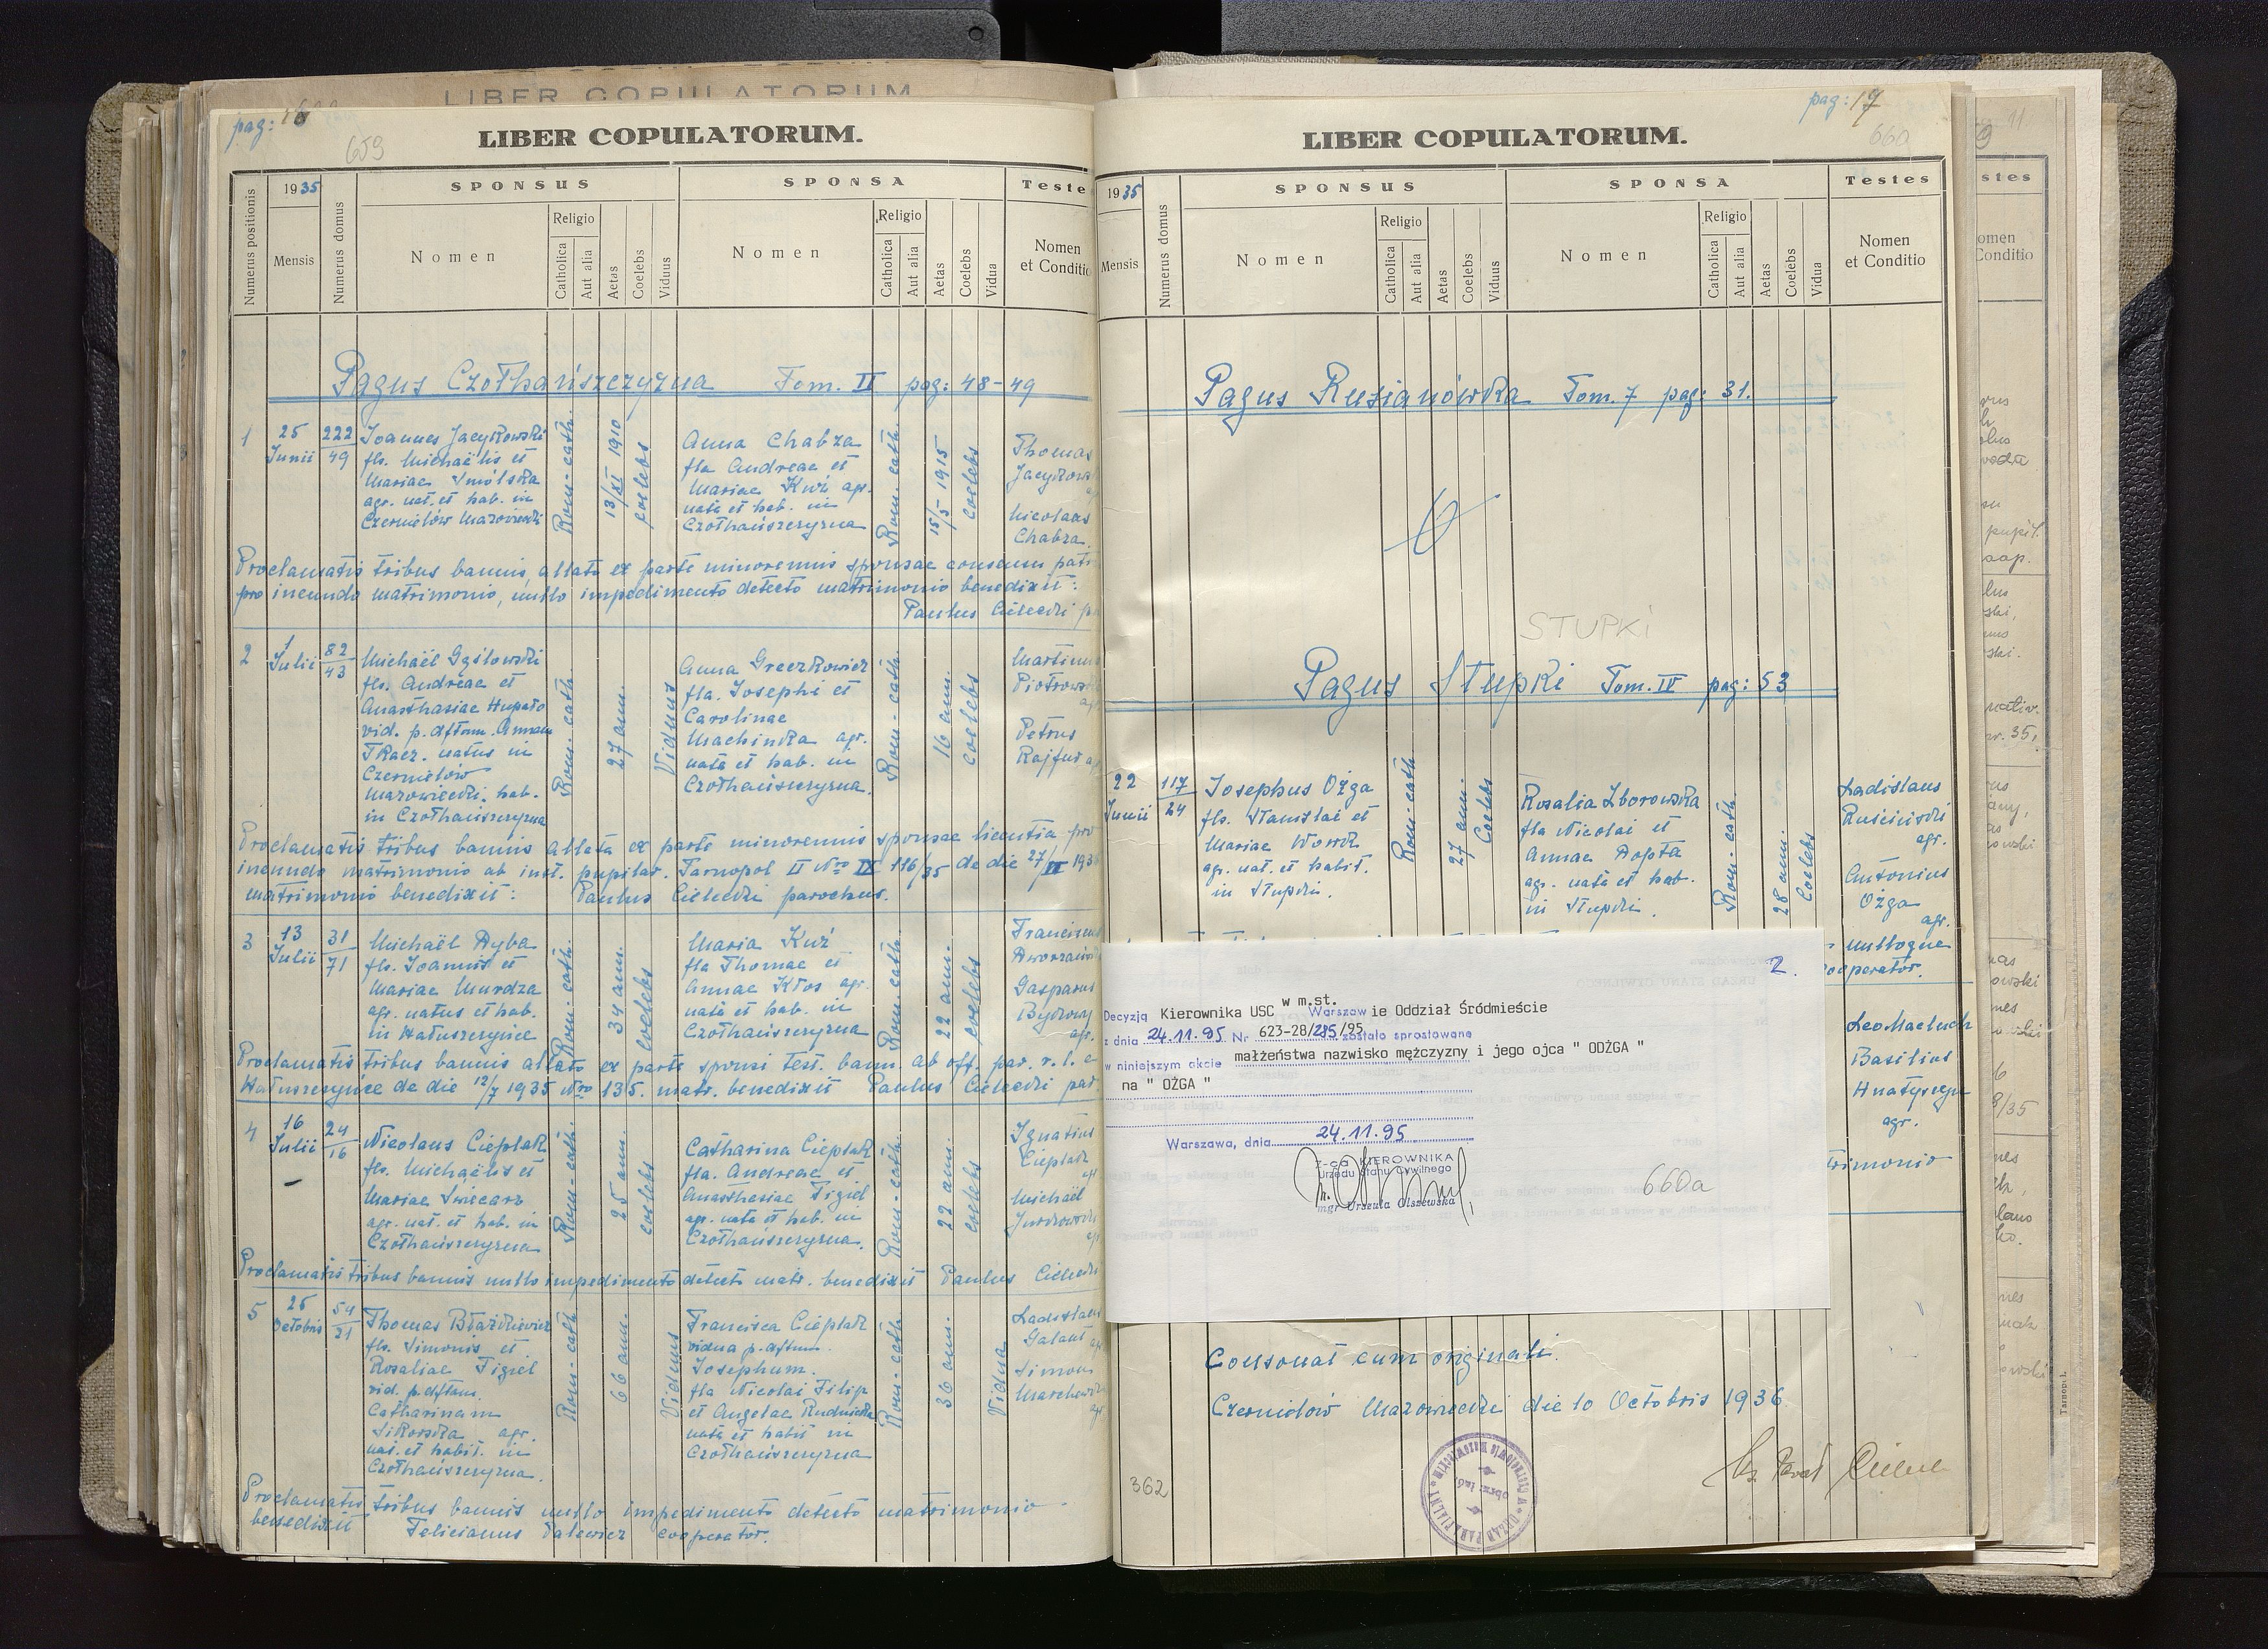 LIBER COPULATORUM
pag: 16
659
LIBER COPULATORUM.
Numerus positionis
1935
Mensis
Numerus domus
SPONSUS
Nomen
Religio
Catholica
Aut alia
Aetas
Coelebs
Viduus
SPONSA
Nomen
Religio
Catholica
Aut alia
Aetas
Coelebs
Vidua
Teste
Nomen
et Conditio
Pagus Czołhańszczyzna Tom. II pag: 48-49
1
25
Junii
222
49
Joannes Jacykowski
fls. Michaëlis et
Mariae Smólska
agr. nat. et hab. in
Czernielów Mazowiecki
Rom-cath.
13/XI 1910
coelebs
Anna Chabza
fla Andreae et
Mariae Kuź agr.
nata et hab. in
Czołhańszczyzna
Rom. cath.
15/5 1915
coelebs
Thomas
Nicolaus
Chabza
Proclamatis tribus bannis, allato ex parte minorennis sponsae consensu
pro ineundo matrimonio, nullo impedimento detecto matrimonio benedixit:
Paulus Cielecki
2
1
Julii
82
43
Michaël
fls. Andreae et
Anasthasiae
vid. p. dftam. Annam
Tkacz. natus in
Czernielów
Mazowiecki. hab.
in Czołhańszczyzna
Rom-cath.
27 ann.
Viduus
Anna Greczkowicz
fla. Josephi et
Carolinae
Machinka agr.
nata et hab. in
Czołhańszczyzna.
Rom-cath.
16 ann.
coelebs
Martinus
Petrus
Proclamatis tribus bannis allata ex parte minorennis sponsae licentia pro
ineundo matrimonio ab inst. pupilar. Tarnopol II Nro IX 116/35 de die
matrimonio benedixit: Paulus Cielecki parochus.
3
13
Julii
31
71
Michaël Dyba
fls. Joannis et
Mariae Murdza
agr. natus et hab.
in Hałuszczyńce
Rom-cath.
34 ann.
coelebs
Maria Kuź
fla Thomae et
Annae Kłos agr.
nata et hab. in
Czołhańszczyzna
Rom. cath.
22 ann.
coelebs
Gasparus
agr.
Proclamatis tribus bannis allato ex parte sponsi test. bann. ab off. par. r. l.
Hałuszczyńce de die 12/7 1935 Nro 135. matr. benedixit Paulus Cielecki par.
4
16
Julii
24
16
Nicolaus Cieplak
fls. Michaëlis et
Mariae
agr. nat. et hab. in
Czołhańszczyzna
Rom-cath.
25 ann.
coelebs
Catharina Cieplak
fla. Andreae et
Anasthasiae Figiel
agr. nata et hab. in
Czołhańszczyzna.
Rom-cath.
22 ann.
coelebs
Ignatius
Cieplak
Michaël
Proclamatis tribus bannis nullo impedimento detecto matr. benedixit Paulus Cielecki
5
26
Octobris
54
21
Thomas Błażkiewicz
fls. Simonis et
Rosaliae Figiel
vid. p. dftam.
Catharinam
Sikorska agr.
nat. et habit. in
Czołhańszczyzna.
Rom-cath
66 ann.
Viduus
Francisca Cieplak
vidua p. dftum.
Josephum.
fla Nicolai Filip
et Angelae Rudnicka
nata et habit in
Czołhańszczyzna
Rom-cath.
36 ann.
Vidua
Ladislaus
Galant
Simon
Proclamatis tribus bannis nullo impedimento detecto matrimonio
benedixit Felicianus Dalewicz cooperator.
pag: 17
660
LIBER COPULATORUM.
1935
Mensis
Numerus domus
SPONSUS
Nomen
Religio
Catholica
Aut alia
Aetas
Coelebs
Viduus
SPONSA
Nomen
Religio
Catholica
Aut alia
Aetas
Coelebs
Vidua
Testes
Nomen
et Conditio
Pagus Rusianówka Tom. 7 pag: 31.
STUPKI
Pagus Stupki Tom. IV pag: 53
22
Junii
117
24
Josephus Ożga
fls. Stanislai et
Mariae
agr. nat. et habit.
in Stupki.
Rom-cath
27 ann.
Coelebs
Rosalia Zborowska
fla Nicolai et
Annae
agr. nata et hab.
in Stupki.
Rom-cath.
28 ann.
Coelebs
Ladislaus
Ruściński
agr.
Antonius
Ożga
agr.
nulloque
cooperator.
2.
Decyzją Kierownika USC w m.st. Warszawie Oddział Śródmieście
z dnia 24.11.95 Nr 623-28/285/95 zostało sprostowane
w niniejszym akcie małżeństwa nazwisko mężczyzny i jego ojca " ODŻGA "
na " OŻGA "
Warszawa, dnia 24.11.95
Z-ca KIEROWNIKA
Urzędu Stanu Cywilnego
mgr Urszula Olszewska
660a
Basilius
agr.
trimonio
Consonat cum originali.
Czernielów Mazowiecki die 10 Octobris 1936
362